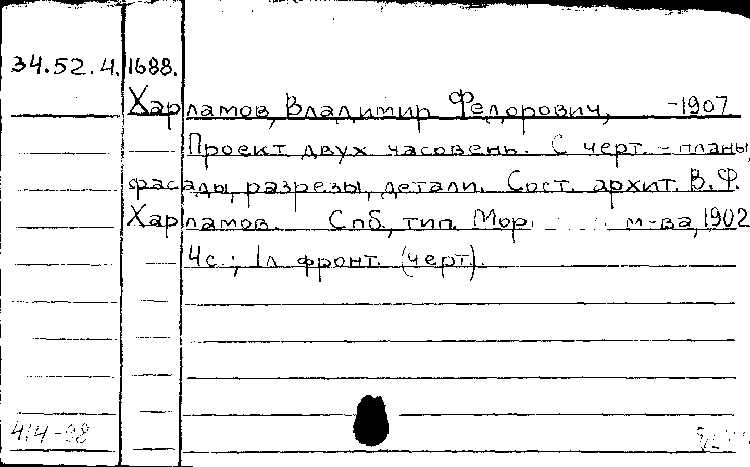 34.52.4.1688.
Харламов, Владимир Федорович, -1907
Проект двух часовень. С черт. - планы,
фасады, разрезы, детали. Сост. архит. В.Ф.
Харламов. Спб, тип. Мор м-ва, 1902
4с.; 1л фронт. (черт).
414-98